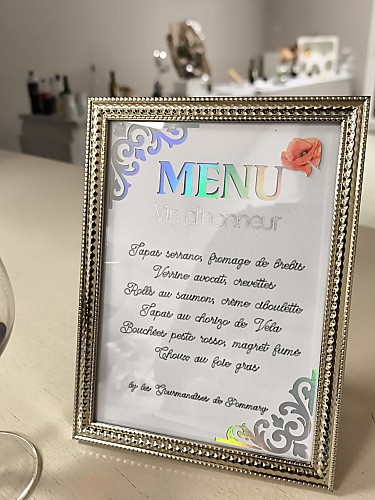 MENU
Vin d'honneur
Tapas serrano, fromage de brebis
Verrine avocats, crevettes
Rolls au saumon, crème ciboulette
Tapas au chorizo de Vela
Bouchées pesto rosso, magret fumé
Choux au foie gras
by les Gourmandises de Pommary